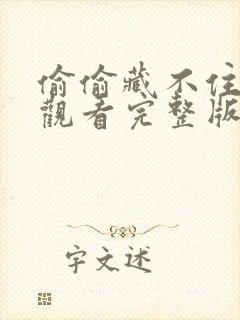 偷偷藏不住
觀看完整版
字文述